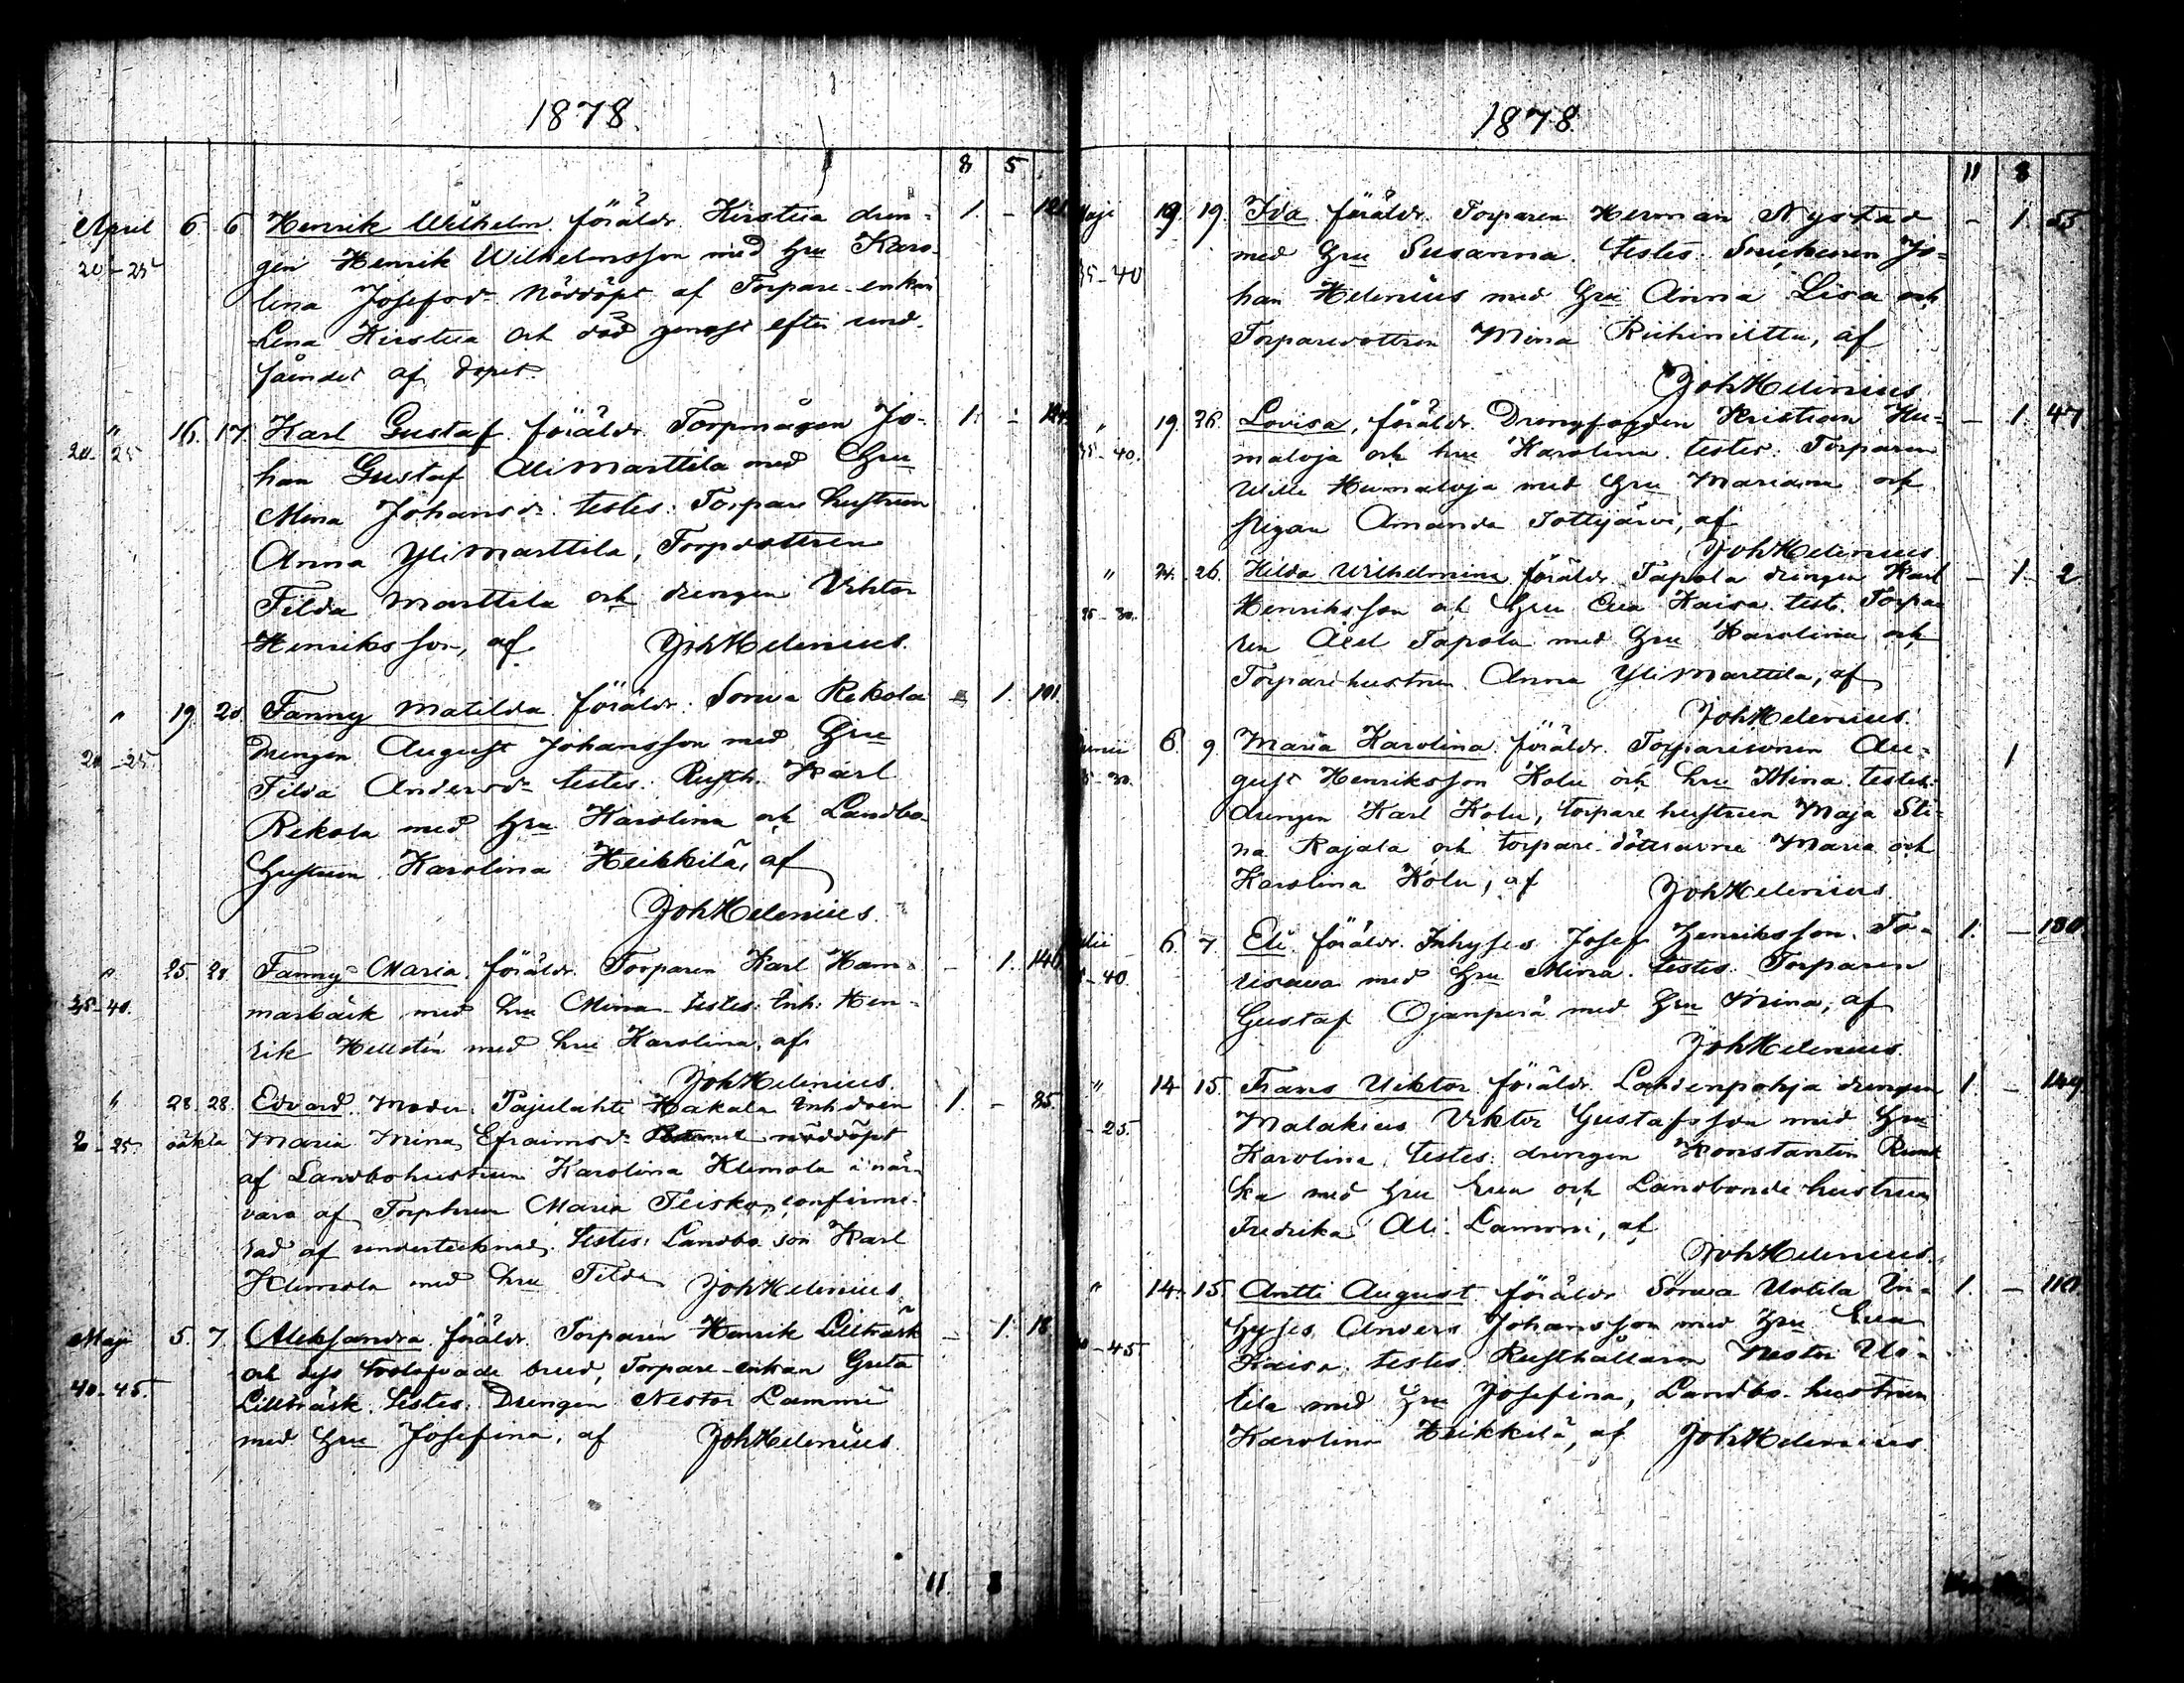 1878.
8 5
April 6. 6 Henrik Wilhelm. föräldr. Kirstua drän= 1. - 121
20-25 gen Henrik Wilhelmsson med hru Karo-
lina Josefsdr Nöddöpt af Torpare-enkan
Lena Kirstua och död genast efter und-
fåendet af dopet.
" 16. 17 Karl Gustaf. föräldr. Torpmågen Jo- 1. -
20-25 han Gustaf Ali Marttila med Hru
Mina Johansdr. testes: Torpare hustrun
Anna Yli Marttila, Torpdottren
Tilda Marttila och drengen Viktor
Henriksson, af JohHelenius.
" 19. 20 Fanny Matilda föräldr: Sorwa Rekola 1. 101.
20-25 drengen August Johansson med Hru
Tilda Andersdr testes: Rusth. Karl
Rekola med hru Karolina och Landbo-
hustrun Karolina Heikkilä, af
JohHelenius.
" 25. 28. Fanny Maria. föräldr. Torparen Karl Ham- - 1. 146
35-40. marbäck med hru Mina testes: Inh: Hen-
rik Hellstén med hru Karolina, af
JohHelenius.
" 28. 28. Edvard. Moder: Pajulahti Hakala Inh. dren 1. - 85.
oäkta Maria Mina Efraimsdr nöddöpt
af Landbohustrun Karolina Klemola i när-
varo af Torphrun Maria Teisko, confirme-
rad af undertecknad. testes: Landbo son Karl
Klemola med hru Tilda JohHelenius.
Maji 5. 7. Aleksandra. föräldr. Torparen Henrik Lillträsk - 1. 18.
40-45. och dess trolofvade brud, Torpare-enkan Greta
Lillträsk. testes: Drengen Nestor Lammi
med hru Josefina, af JohHelenius.
11 8
1878.
11 8
Maji 19. 19. Ida. föräldr. Torparen Herman Nystad - 1. 55
35-40 med hru Susanna. testes: Snickaren Jo=
han Helenius med hru Anna Lisa och
Torparedottren Mina Riihiniittu, af
JohHelenius
" 19. 26. Lovisa, föräldr. Drengfogden Kristian Hu= - 1. 47
35-40. maloja och hru Karolina. testes: Torparen
Wille Humaloja med hru Mariana och
pigan Amanda Tottijärvi, af
JohHelenius.
" 24. 26. Hilda Wilhelmina föräldr. Tapola drengen Karl - 1. 2
25-30. Henriksson och hru Eva Kaisa. test. Torpa-
ren Axel Tapola med hru Karolina och
Torparehustrun Anna Yli Marttila, af
JohHelenius.
Junii 6. 9. Maria Karolina. föräldr. Torparesonen Au= 1
25-30. gust Henriksson Kolu och hru Mina. testes:
drengen Karl Kolu, torpare hustrun Maja Sti=
na Rajala och torpare-döttrarne Maria och
Karolina Kolu, af JohHelenius.
6 7 Eli föräldr. Inhyses Josef Henriksson. To- 1. - 180
-40. med hru Mina. testes. Torparen
Gustaf Ojanperä med hru Mina, af
JohHelenius.
" 14 15. Frans Viktor föräldr. Lahdenpohja drengen 1. - 149.
-25. Malakias Viktor Gustafsson med hru
Karolina, testes: drengen Konstantin
ka med hru Eva och Landbonde hustrun
Fredrika Ali-Lammi, af
JohHelenius.
" 14. 15. Antti August. föräldr Sorwa Uotila In- 1. - 110
-45 hyses Anders Johansson med hru Eva
Kaisa. testes: Rusthållaren Nestor Uo-
tila med hru Josefina, Landbo-hustrun
Karolina Heikkilä, af JohHelenius.